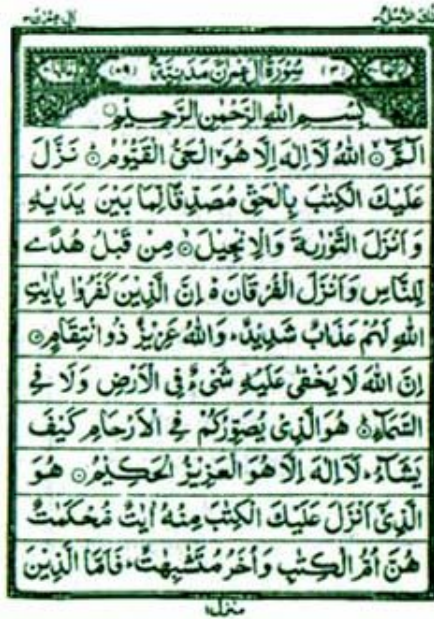 تلك الرسل٣ ال عمرن٣
(٣) سُوْرَةُ اٰلِ عِمْرٰنَ مَدَنِيَّةٌ (٨٩)
بِسْمِ اللهِ الرَّحْمٰنِ الرَّحِيْمِ
الٓمّٓ ۙ اللهُ لَاۤ اِلٰهَ اِلَّا هُوَ الْحَىُّ الْقَيُّوْمُ ؕ نَزَّلَ
عَلَيْكَ الْكِتٰبَ بِالْحَقِّ مُصَدِّقًا لِّمَا بَيْنَ يَدَيْهِ
وَاَنْزَلَ التَّوْرٰىةَ وَالْاِنْجِيْلَ ۙ مِنْ قَبْلُ هُدًى
لِّلنَّاسِ وَاَنْزَلَ الْفُرْقَانَ ؕ اِنَّ الَّذِيْنَ كَفَرُوْا بِاٰيٰتِ
اللهِ لَهُمْ عَذَابٌ شَدِيْدٌ ؕ وَاللهُ عَزِيْزٌ ذُو انْتِقَامٍ ؕ
اِنَّ اللهَ لَا يَخْفٰى عَلَيْهِ شَىْءٌ فِى الْاَرْضِ وَلَا فِى
السَّمَآءِ ؕ هُوَ الَّذِىْ يُصَوِّرُكُمْ فِى الْاَرْحَامِ كَيْفَ
يَشَآءُ ؕ لَاۤ اِلٰهَ اِلَّا هُوَ الْعَزِيْزُ الْحَكِيْمُ ۞ هُوَ
الَّذِىْۤ اَنْزَلَ عَلَيْكَ الْكِتٰبَ مِنْهُ اٰيٰتٌ مُّحْكَمٰتٌ
هُنَّ اُمُّ الْكِتٰبِ وَاُخَرُ مُتَشٰبِهٰتٌ ؕ فَاَمَّا الَّذِيْنَ
منزل١